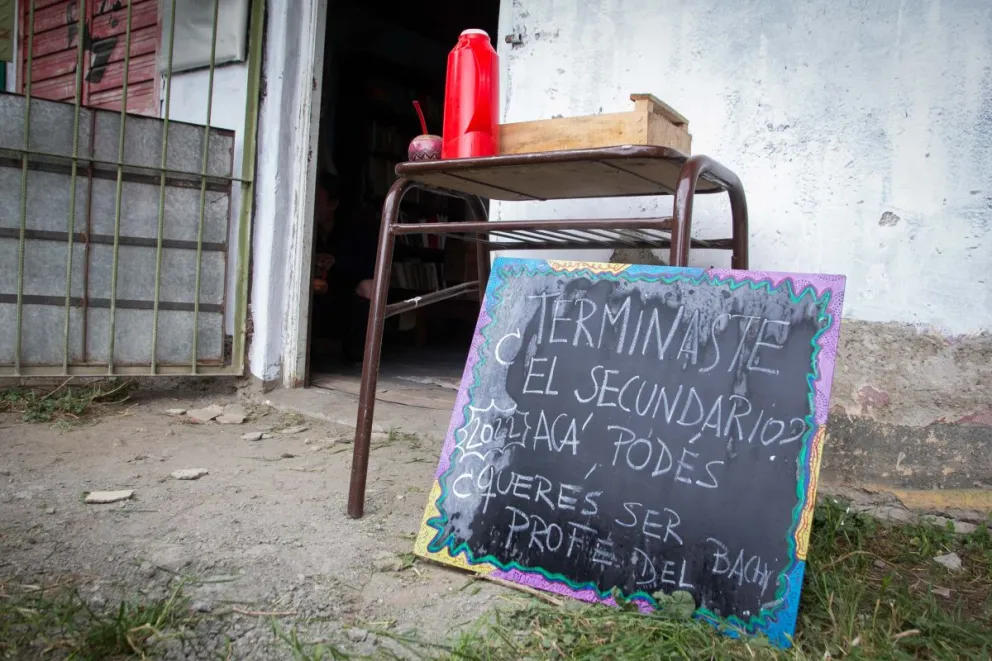 ¿TERMINASTE
EL SECUNDARIO?
2022 ACÁ PODÉS
¿QUERÉS SER
PROFE DEL BACHI